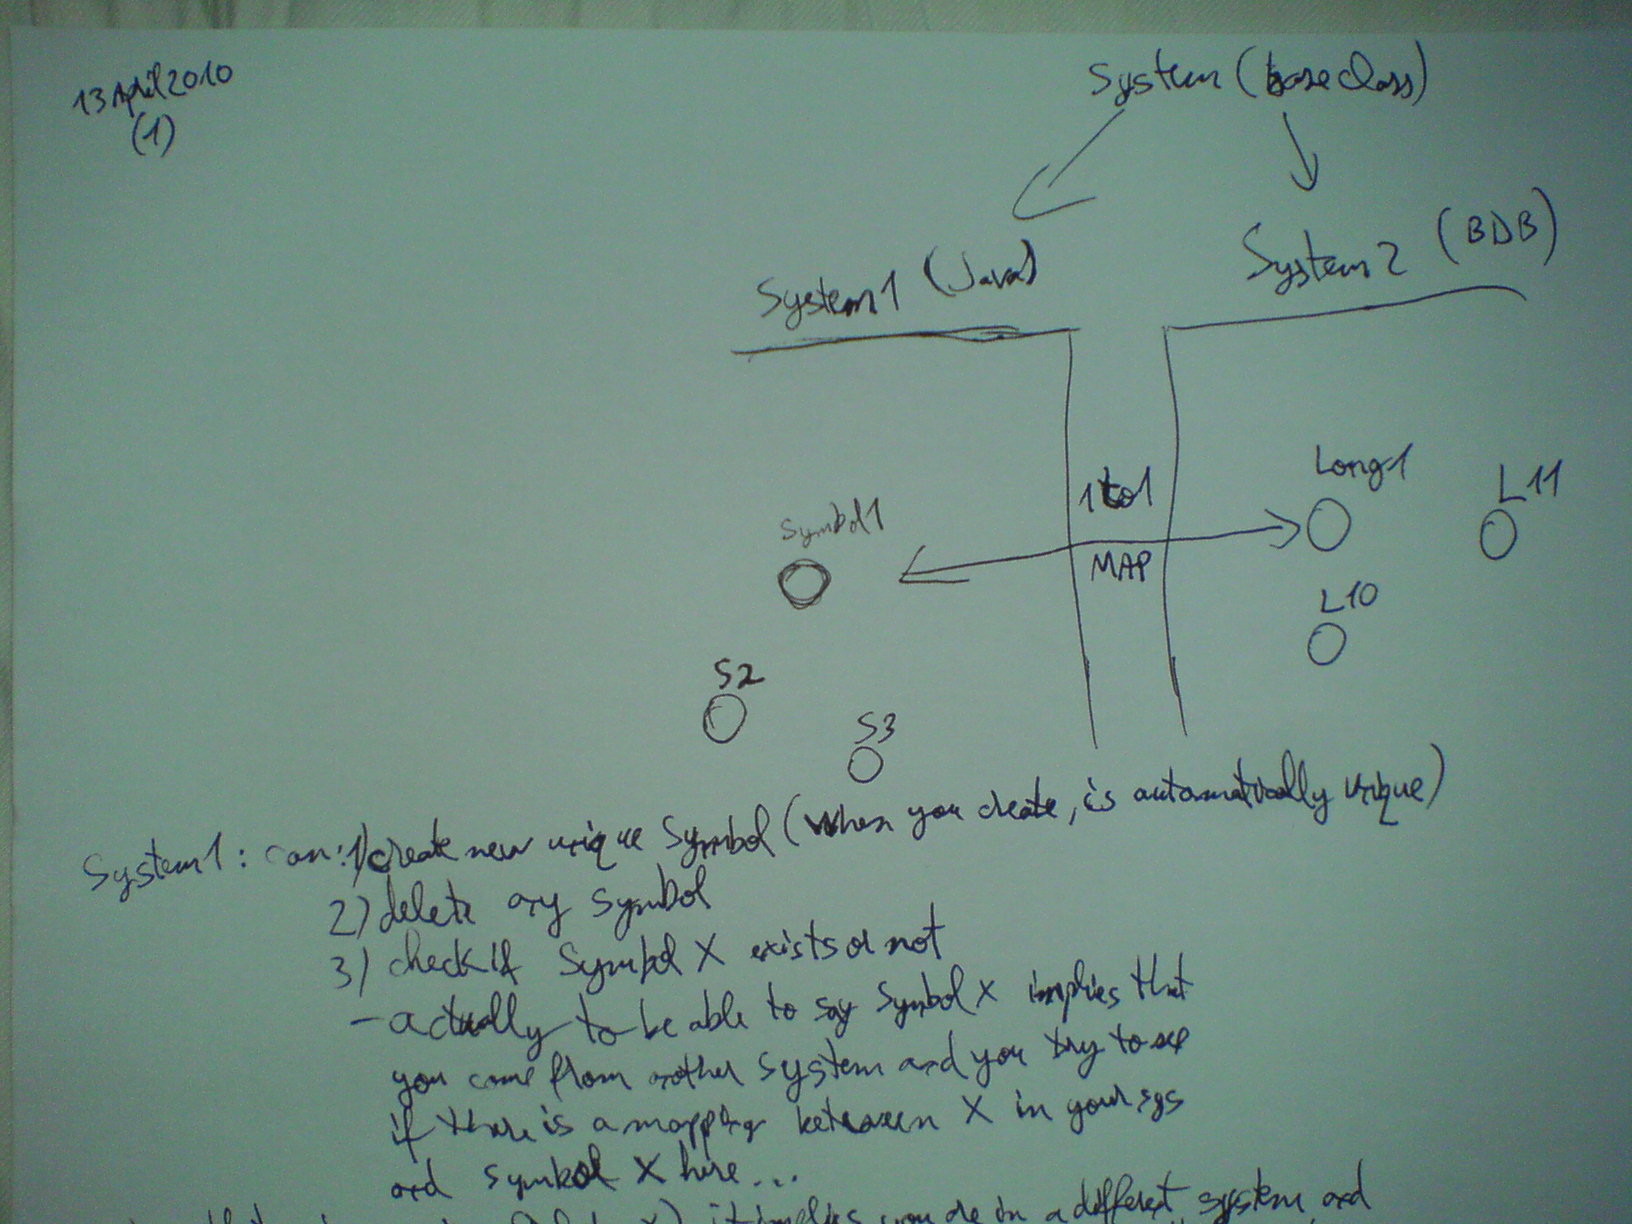 13 April 2010
(1)
System (base class)
System1 (Java)
System2 (BDB)
Long1
L11
1to1
Symbol1
MAP
L10
S2
S3
System1: can: 1) create new unique Symbol (When you create, is automatically unique)
2) delete any symbol
3) check if Symbol X exists or not
- actually to be able to say Symbol X implies that
you come from another system and you try to see
if there is a mapping between X in your sys
and symbol X here...
it implies you are in a different system and